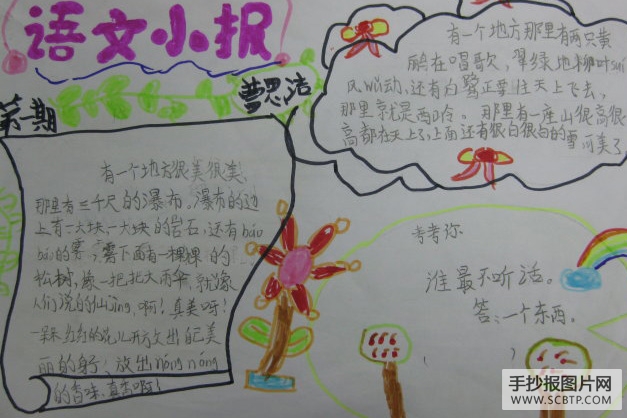 语文小报
第一期
曹思洁
有一个地方那里有两只黄
鹂在唱歌，翠绿地柳叶sui
风wǔ动，还有白鹭正要往天上飞去，
那里就是西岭。那里有一座山很高很
高都在天上了，上面还有很白很白的雪可美了
有一个地方很美很美，
那里有三千尺的瀑布。瀑布的边
上有一大块一大块的岩石，还有báo
báo的雾，雾下面有一棵棵的
松树，像一把把大雨伞，就像
人们说的仙jìng，啊！真美呀！
一朵朵的花儿开放出自己美
丽的身子，放出nóng nóng
的香味，真香啊！
考考你
谁最不听话。
答：一个东西。
（ ）
手抄报图片网
WWW.SCBTP.COM